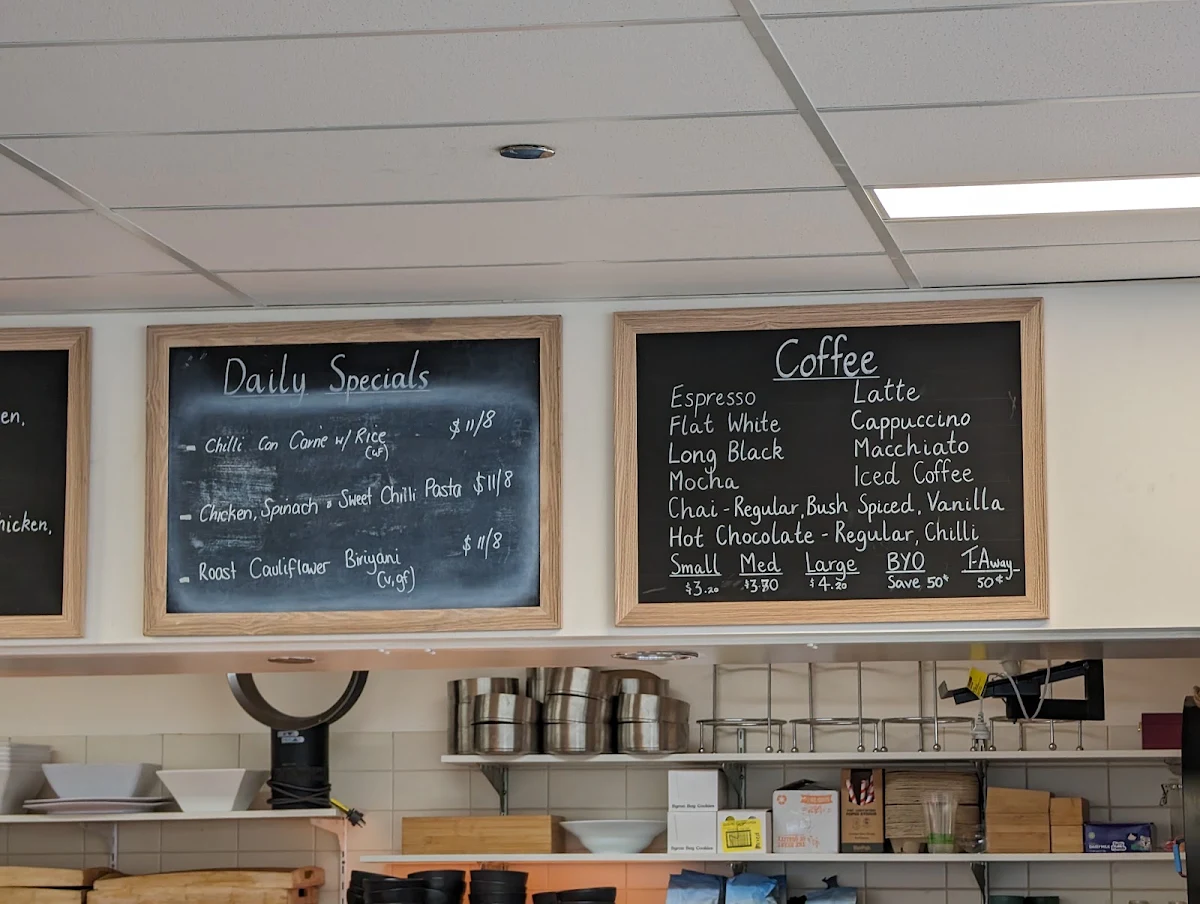 en,
hicken,
Daily Specials
- Chilli Con Carne w/ Rice $11/8
(GF)
- Chicken, Spinach & Sweet Chilli Pasta $11/8
- Roast Cauliflower Biriyani $11/8
(v,gf)
Coffee
Espresso Latte
Flat White Cappuccino
Long Black Macchiato
Mocha Iced Coffee
Chai - Regular, Bush Spiced, Vanilla
Hot Chocolate - Regular, Chilli
Small Med Large BYO T-Away
$3.20 $3.80 $4.20 Save 50¢ 50¢